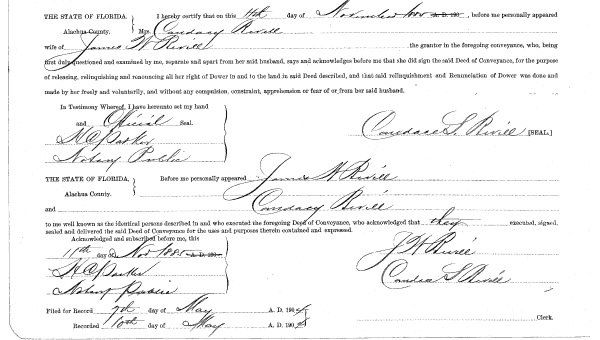 THE STATE OF FLORIDA, I hereby certify that on this 11th day of November A. D. 190 , before me personally appeared
Alachua County. Mrs. Candacy Rivill
wife of James W Rivill the grantor in the foregoing conveyance, who, being
first duly questioned and examined by me, separate and apart from her said husband, says and acknowledges before me that she did sign the said Deed of Conveyance, for the purpose
of releasing, relinquishing and renouncing all her right of Dower in and to the land in said Deed described, and that said relinquishment and Renunciation of Dower was done and
made by her freely and voluntarily, and without any compulsion, constraint, apprehension or fear of or from her said husband.
In Testimony Whereof, I have hereunto set my hand
and Official Seal.
Candace S. Rivill [SEAL.]
H C Parker
Notary Public
THE STATE OF FLORIDA, Before me personally appeared James W Rivill
Alachua County.
and Candacy Rivill
to me well known as the identical persons described in and who executed the foregoing Deed of Conveyance, who acknowledged that they executed, signed,
sealed and delivered the said Deed of Conveyance for the uses and purposes therein contained and expressed.
Acknowledged and subscribed before me, this
11th day of Nov 1885 A. D. 190
J W Rivill
H C Parker
Candace S Rivill
Notary Public
Filed for Record 9th day of May A. D. 190
Recorded 10th day of May A. D. 190
Clerk.